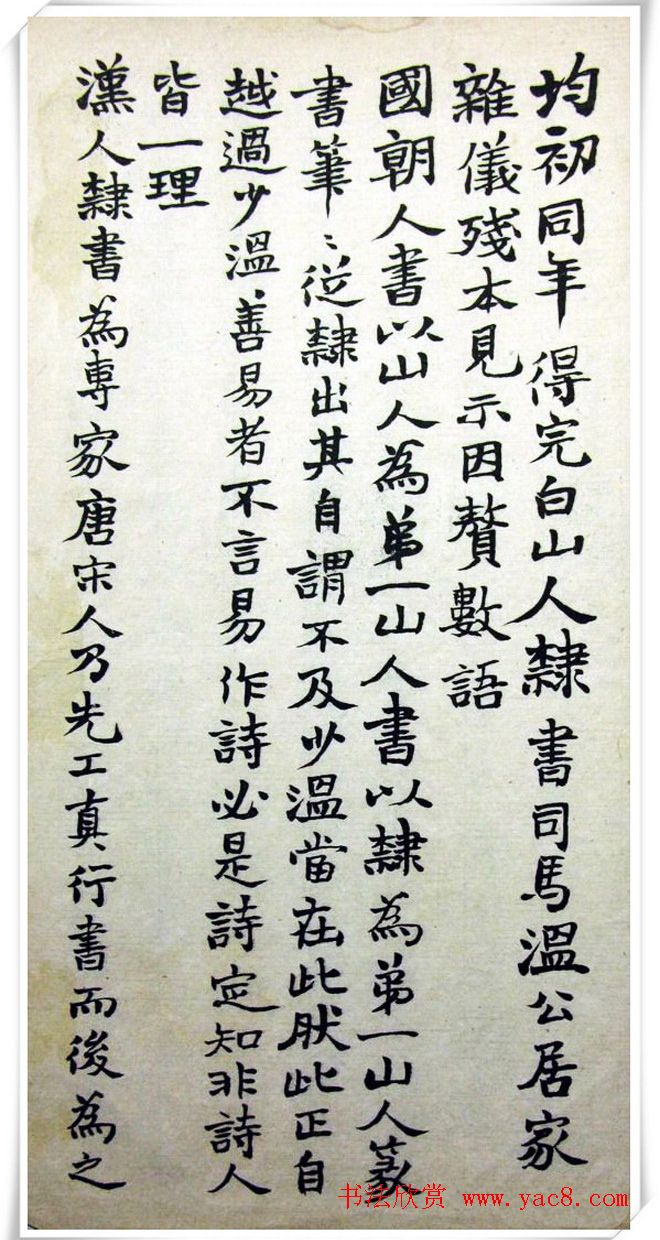 均初同年得完白山人隸書司馬溫公居家
雜儀殘本見示因贅數語
國朝人書以山人為弟一山人書以隸為弟一山人篆
書筆〻從隸出其自謂不及少溫當在此肰此正自
越過少溫善易者不言易作詩必是詩定知非詩人
皆一理
漢人隸書為專家唐宋人乃先工真行書而後為之
书法欣赏 www.yac8.com